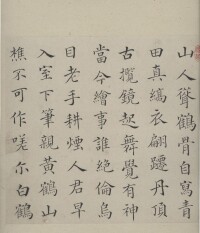 山人聳鶴骨自寫青
田真縞衣翩躚丹頂
古攬鏡起舞覺有神
當今繪事誰絕倫烏
目老手耕煙人君早
入室下筆親黃鶴山
樵不可作嗟尒白鶴